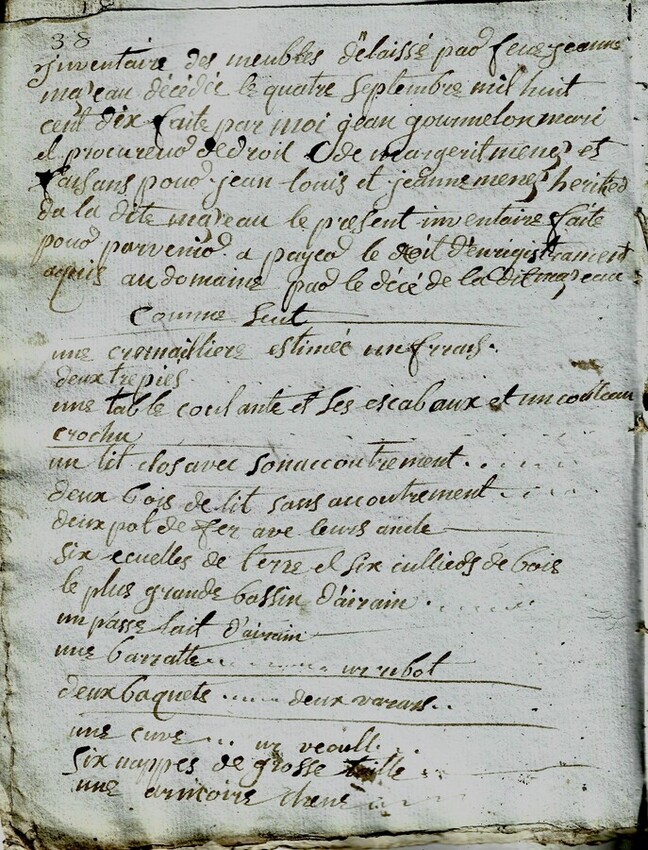 38
inventaire des meubles délaissé par feue jeanne
mazeau décédée le quatre septembre mil huit
cent dix faite par moi jean gourmelon mari
et procureur de droit de margerit menez et
faisans pour jean louis et jeanne menez herited
da la dite mazeau le present inventaire faite
pour parvenir a payer le droit d'enrigistrament
aquis au domaine par le décé de la dit mazeau
Comme suit
une cremailliere estimée un frans.
deux trepiés
une table coulante et ses escabaux et un couteau
crochu
un lit clos avec son accoutrement . . . .
deux bois de lit sans acoutrement . . . .
deux pot de fer ave leurs ancle
six ecuelles de terre et six cullieds de bois
le plus grande bassin d'airain . . . .
un passe lait d'airain
une barratte . . . . . un ribot
deux baquets . . . . deux
une cuve . . .
six nappes de grosse toille . .
une armoire chene . .